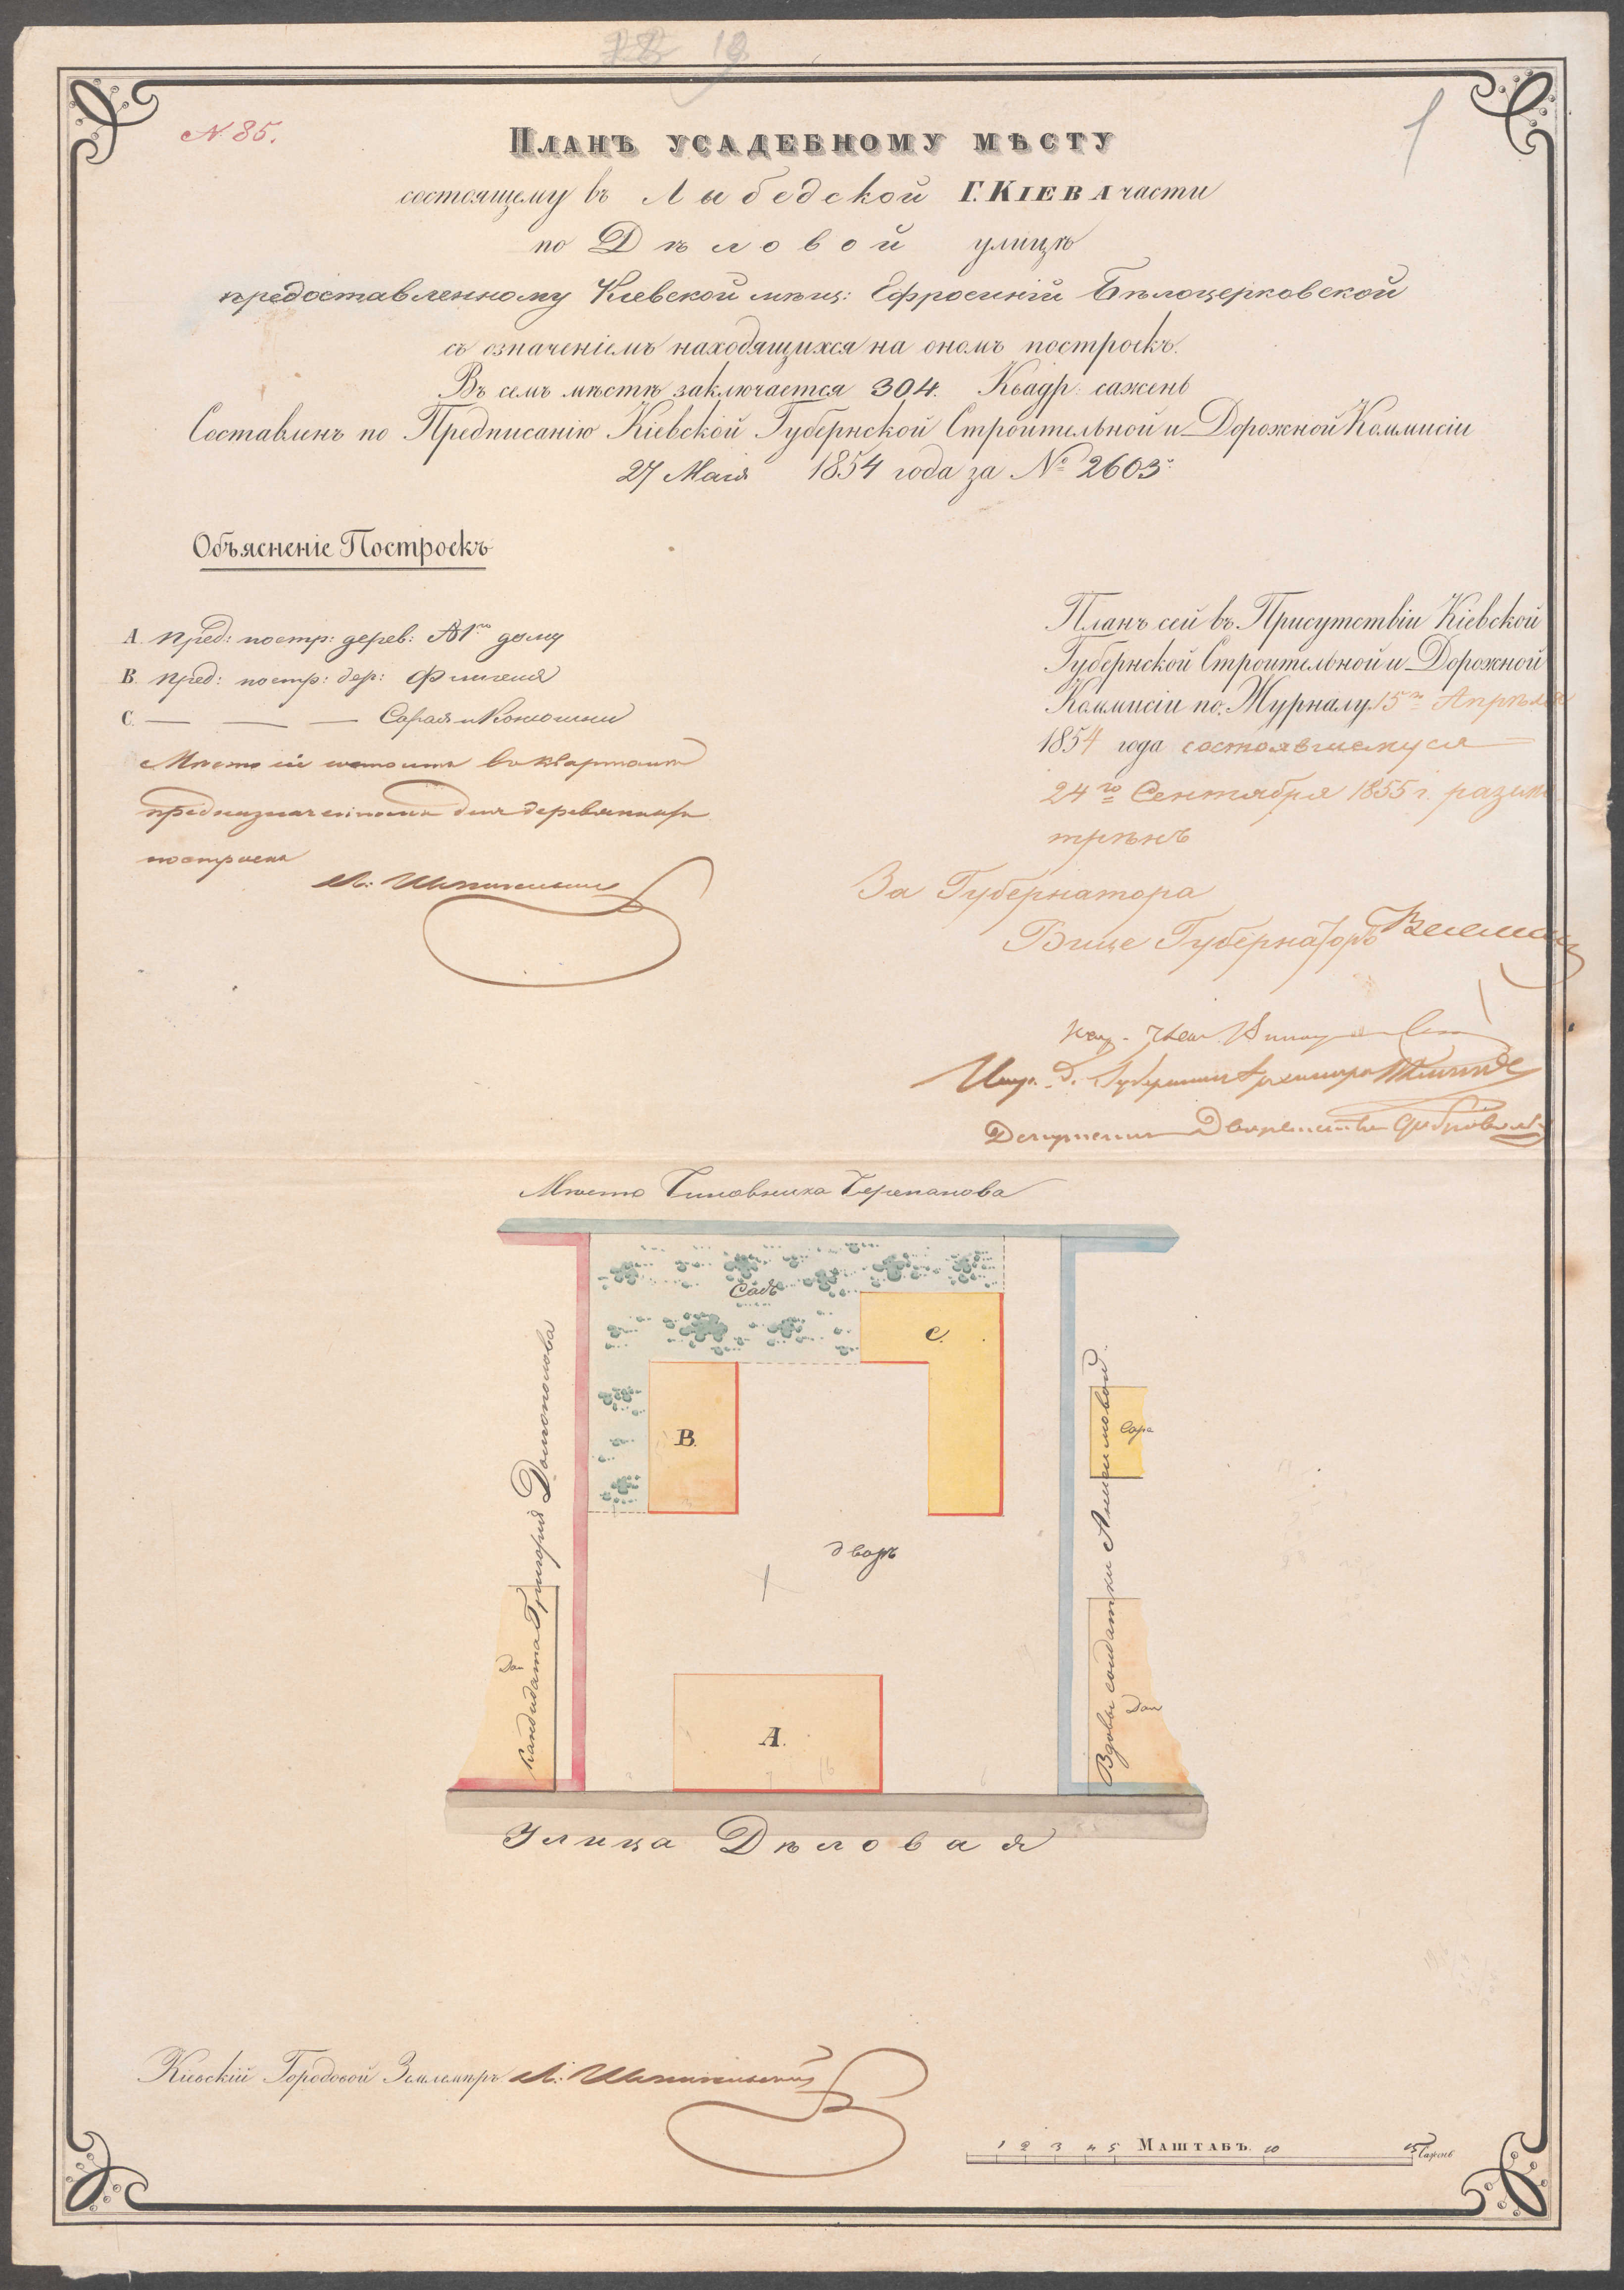 19
N. 85.
1
Планъ усадебному мѣсту
состоящему въ Лыбедской Г. Кіева части
по Дѣловой улицѣ
предоставленному Кіевской мѣщ: Ефросиніи Бѣлоцерковской
съ означеніемъ находящихся на ономъ построекъ.
Въ семъ мѣстѣ заключается 304. Квадр: сажень
Составленъ по Предписанію Кіевской Губернской Строительной и Дорожной Коммисіи
27 Маія 1854 года за № 2603
Объясненіе Построекъ
А. пред: постр: дерев: домъ
В. пред: постр: дер: Флигеля
С. — — — Сарая и Конюшни
Мѣсто сіе состоитъ въ кварталѣ
предназначенномъ для деревянныхъ
построекъ
Планъ сей въ Присутствіи Кіевской
Губернской Строительной и Дорожной
Коммисіи по Журналу 15го Апрѣля
1854 года состоявшемуся
24го Сентября 1855 г. разсмо
трѣнъ
За Губернатора
Вице Губернаторъ
Губернскій Архитекторъ
Депутатъ Дворянства
Мѣсто Чиновника Черепанова
Садъ
С.
В.
дворъ
А.
Кандидата Григорія Домонтова
Дом
Вдовы солдатки Анисимовой
Сара
Дом
Улица Дѣловая
Кіевскій Городовой Землемѣръ
1 2 3 4 5 Маштабъ. 10 15 Сажень